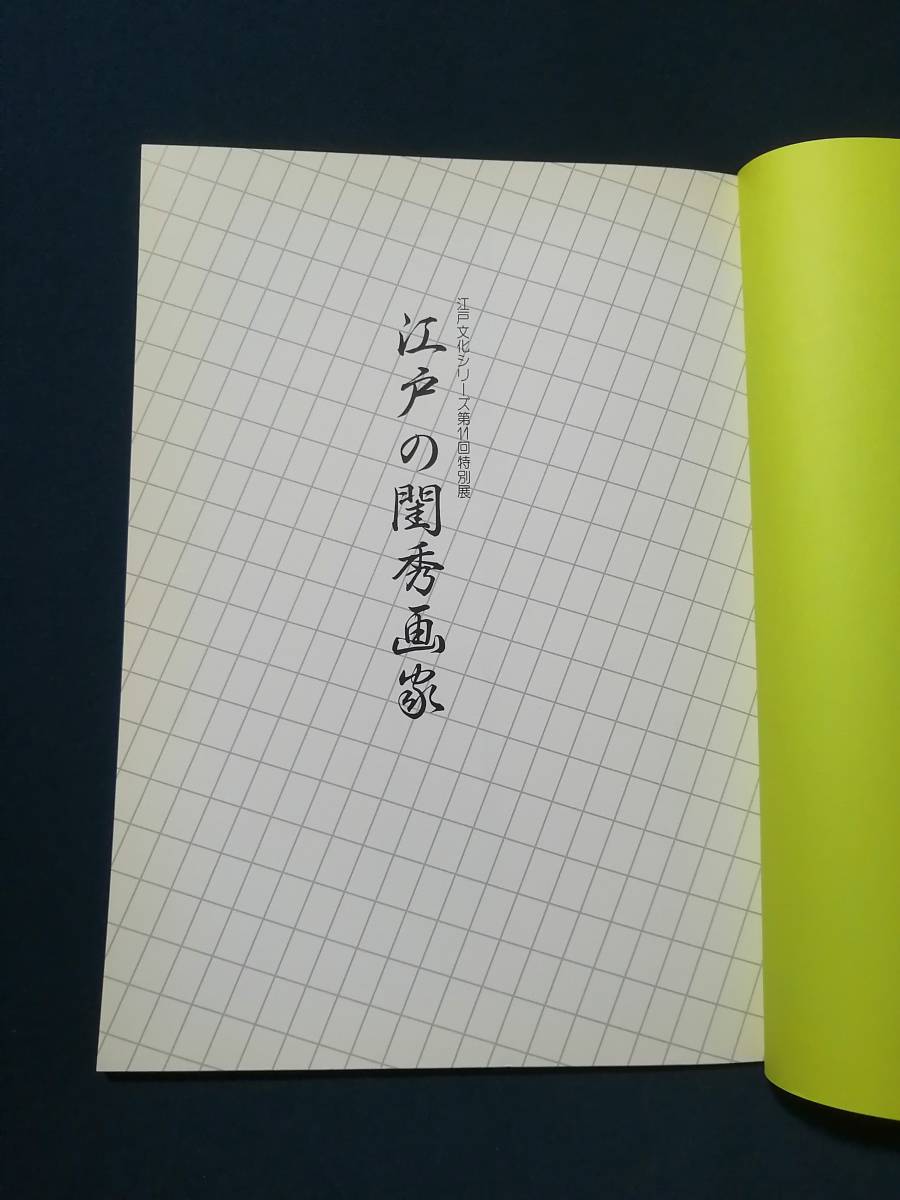 江戸文化シリーズ第11回特別展
江戸の閨秀画家